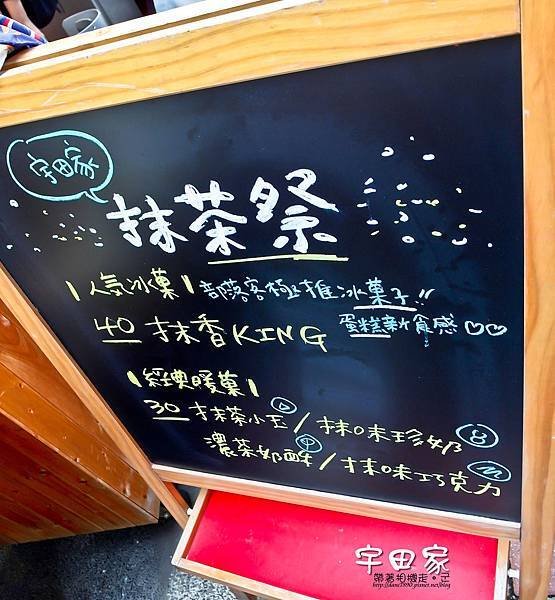 宇田家
抹茶祭
|人気冰菓| 部落客極推冰菓子!!
40 抹香KING 蛋糕新食感♡♡
|經典暖菓|
30 抹茶小玉 / 抹味珍奶
濃茶奶酥 / 抹味巧克力
宇田家
帶著相機走。定
http://dane1890.pixnet.net/blog